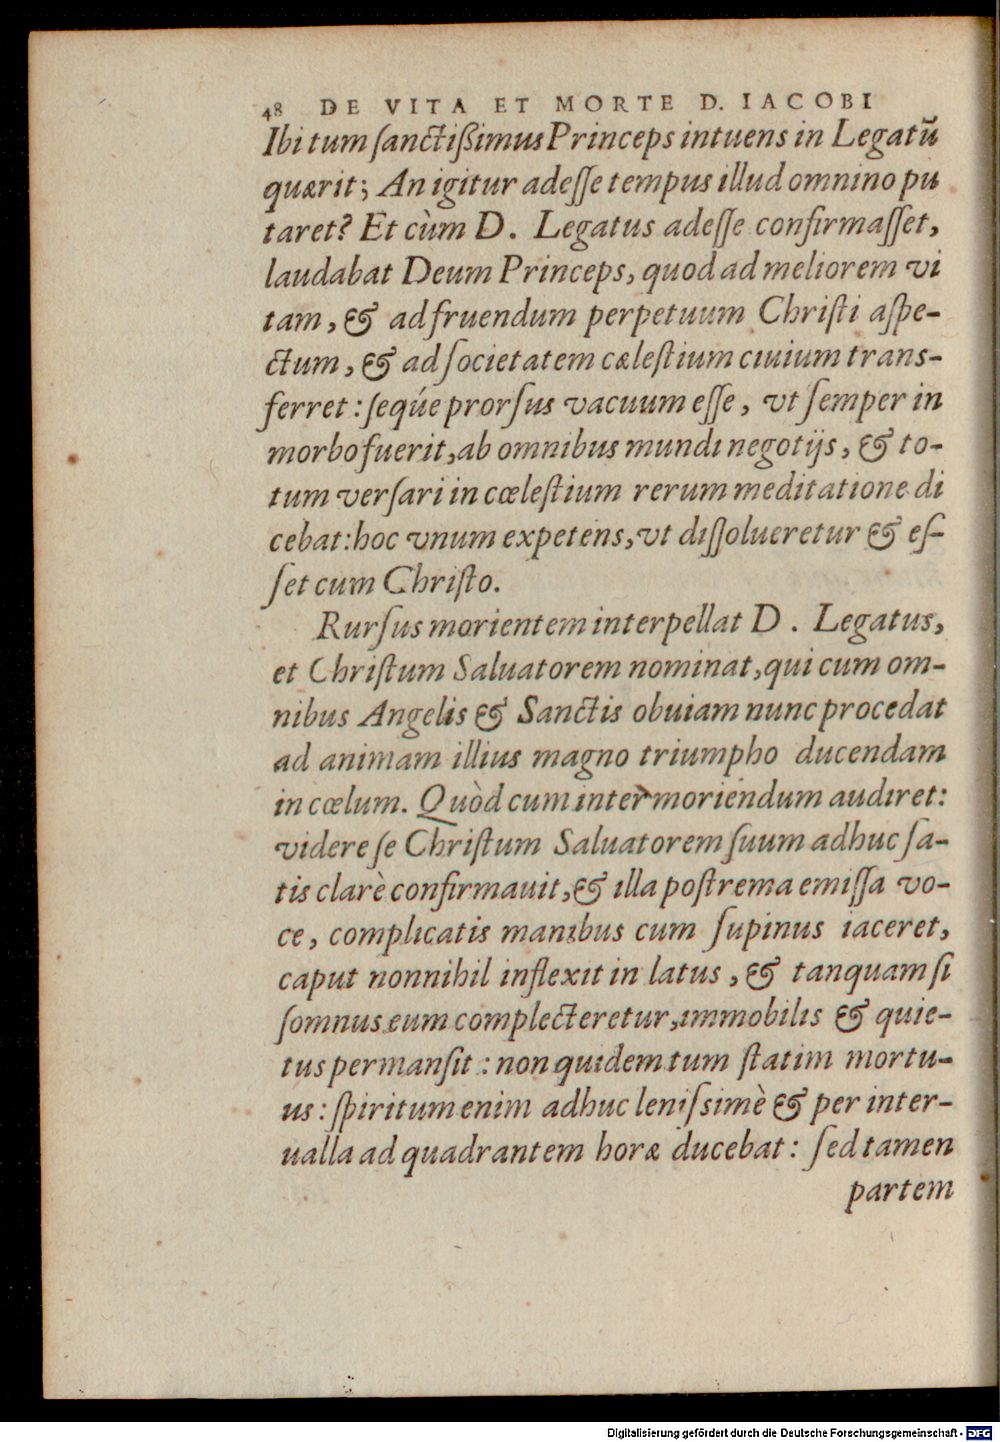 48 DE VITA ET MORTE D. IACOBI
Ibi tum ſanctißimus Princeps intuens in Legatũ
quærit; An igitur adeſſe tempus illud omnino pu
taret? Et cùm D. Legatus adeſſe confirmaſſet,
laudabat Deum Princeps, quod ad meliorem vi
tam, & ad fruendum perpetuum Chriſti aſpe-
ctum, & ad ſocietatem cæleſtium ciuium trans-
ferret: ſeq́ue prorſus vacuum eſſe, vt ſemper in
morbo fuerit, ab omnibus mundi negotijs, & to-
tum verſari in cœleſtium rerum meditatione di
cebat: hoc vnum expetens, vt diſſolueretur & eſ-
ſet cum Chriſto.
Rurſus morientem interpellat D. Legatus,
et Chriſtum Saluatorem nominat, qui cum om-
nibus Angelis & Sanctis obuiam nunc procedat
ad animam illius magno triumpho ducendam
in cœlum. Quòd cum inter moriendum audiret:
videre ſe Chriſtum Saluatorem ſuum adhuc ſa-
tis clarè confirmauit, & illa poſtrema emiſſa vo-
ce, complicatis manibus cum ſupinus iaceret,
caput nonnihil inflexit in latus, & tanquam ſi
ſomnus eum complecteretur, immobilis & quie-
tus permanſit: non quidem tum ſtatim mortu-
us: ſpiritum enim adhuc leniſsimè & per inter-
ualla ad quadrantem horæ ducebat: ſed tamen
partem
Digitalisierung gefördert durch die Deutsche Forschungsgemeinschaft - DFG